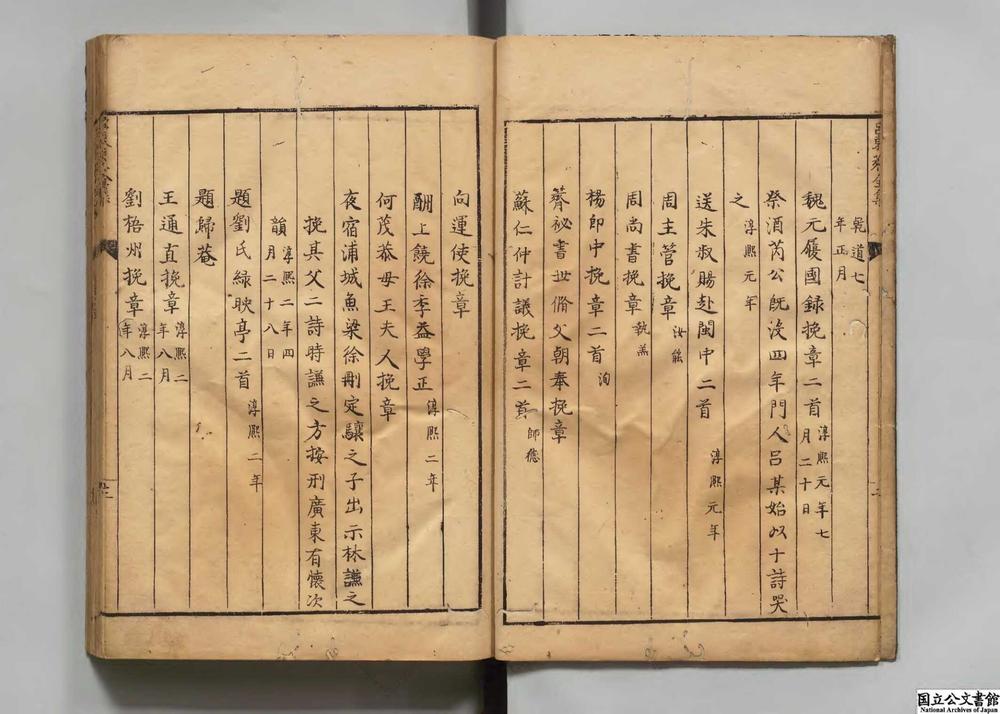 乾道七
年正月
魏元履國録挽章二首 淳熙元年七
月二十日
祭酒芮公既没四年門人呂某始以十詩哭
之 淳熙元年
送朱叔賜赴閩中二首 淳熙元年
周主管挽章 汝能
周尚書挽章 執羔
楊郎中挽章二首 洵
薺祕書世脩父朝奉挽章
蘇仁仲計議挽章二首 師德
向運使挽章
酬上饒徐季益學正 淳熙二年
何茂恭母王夫人挽章
夜宿浦城魚梁徐刪定驤之子出示林謙之
挽其父二詩時謙之方按刑廣東有懷次
韻 淳熙二年四
月二十八日
題劉氏緑映亭二首 淳熙二年
題歸菴
王通直挽章 淳熙二
年八月
劉梧州挽章 淳熙二
年八月
国立公文書館
National Archives of Japan